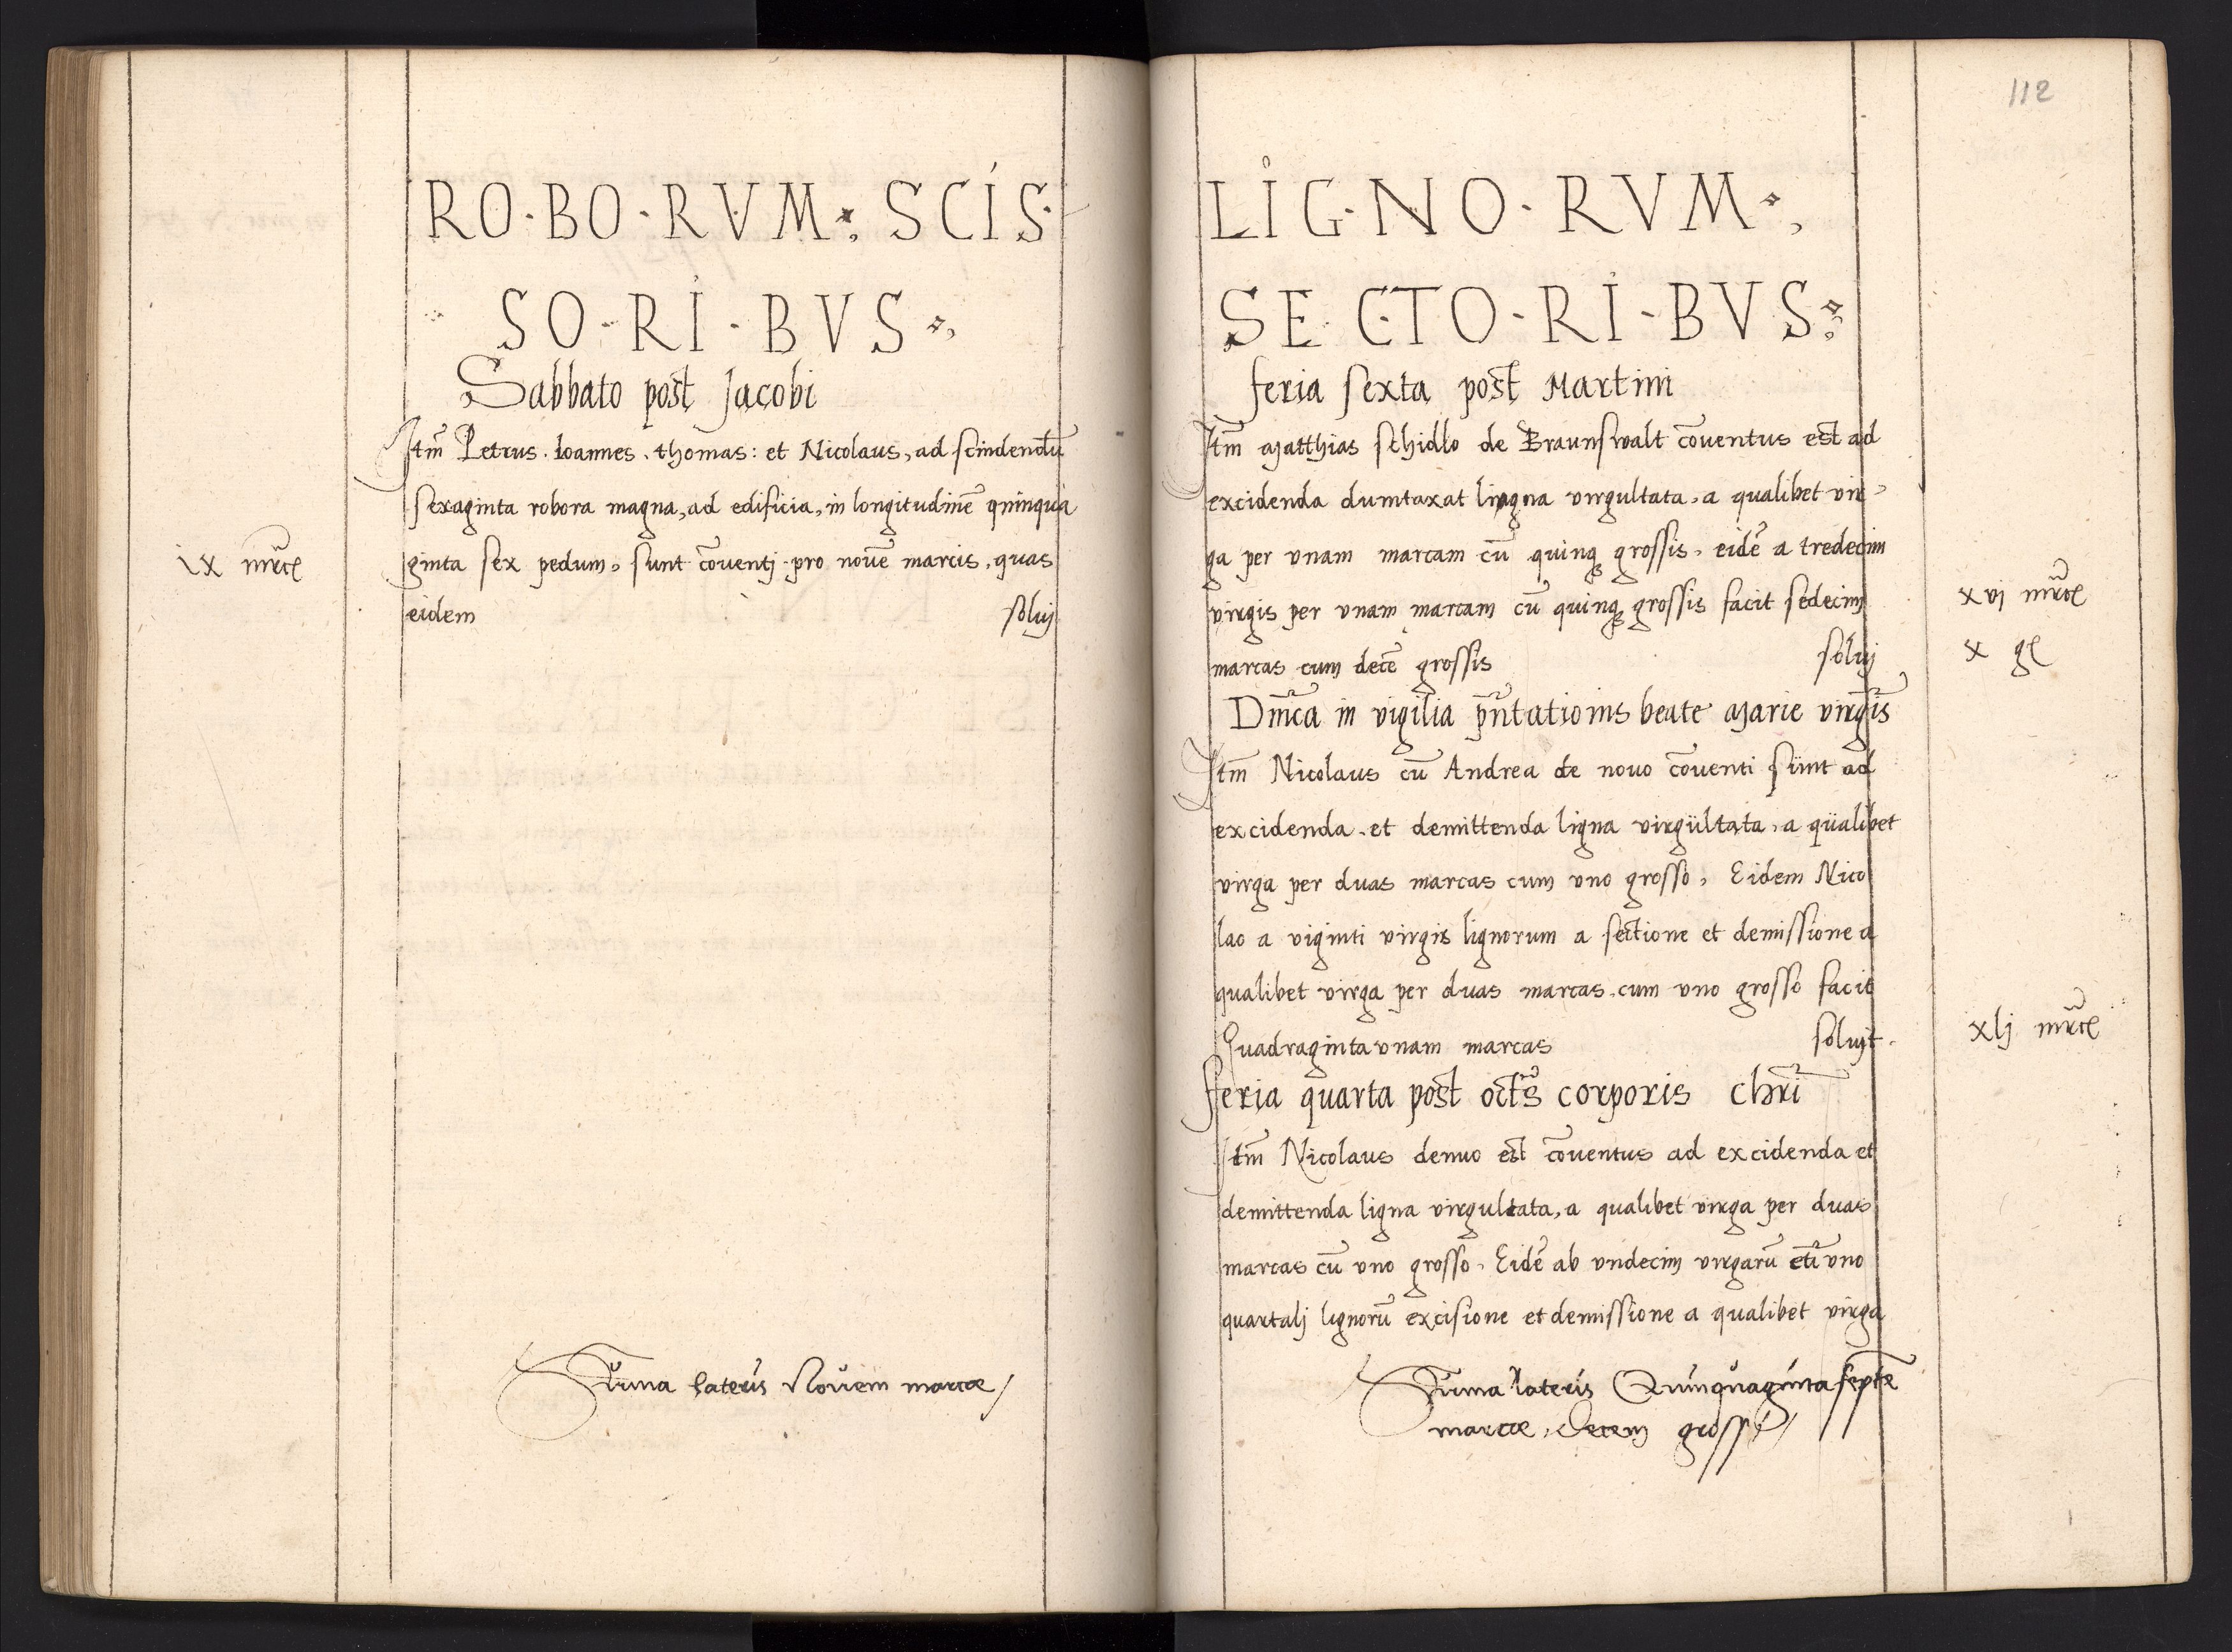 RO·BO·RVM: SCIS·
SO·RI·BVS
Sabbato post Jacobi
Itm̃ Petrus. Ioannes. thomas: et Nicolaus, ad scindendũ
sexaginta robora magna, ad edificia, in longitudinẽ quinqua
ginta sex pedum, sunt cõuentj pro nouẽ marcis, quas
ix mrc̃
eidem soluj
Suma lateris Nouem marcæ
112
LIG·NO·RVM
SE·CTO·RI·BVS
feria sexta post Martini
Itm̃ Matthias schidlo de Braunswalt cõuentus est ad
excidenda dumtaxat lingna virgultata, a qualibet vir
ga per vnam marcam cũ quinq grossis, eidẽ a tredecim
virgis per vnam marcam cũ quinq grossis facit sedecim
xvj mrc̃
marcas cum decẽ grossis soluj
x g
Dnĩca in vigilia pñtationis beate Marie virgĩs
Itm̃ Nicolaus cũ Andrea de nouo cõuenti sunt ad
excidenda et demittenda ligna virgultata, a qualibet
virga per duas marcas cum vno grosso, Eidem Nico
lao a viginti virgis lignorum a sectione et demissione a
qualibet virga per duas marcas, cum vno grosso facit
Quadraginta vnam marcas soluit
xlj mrc̃
feria quarta post octs̃ corporis chrĩ
Itm̃ Nicolaus denuo est cõuentus ad excidenda et
demittenda ligna virgultata, a qualibet virga per duas
marcas cũ vno grosso, Eidẽ ab vndecim virgarũ et vno
quartalj lignorũ excisione et demissione a qualibet virga
Suma lateris Quinquaginta septẽ
marcæ, decem grossi